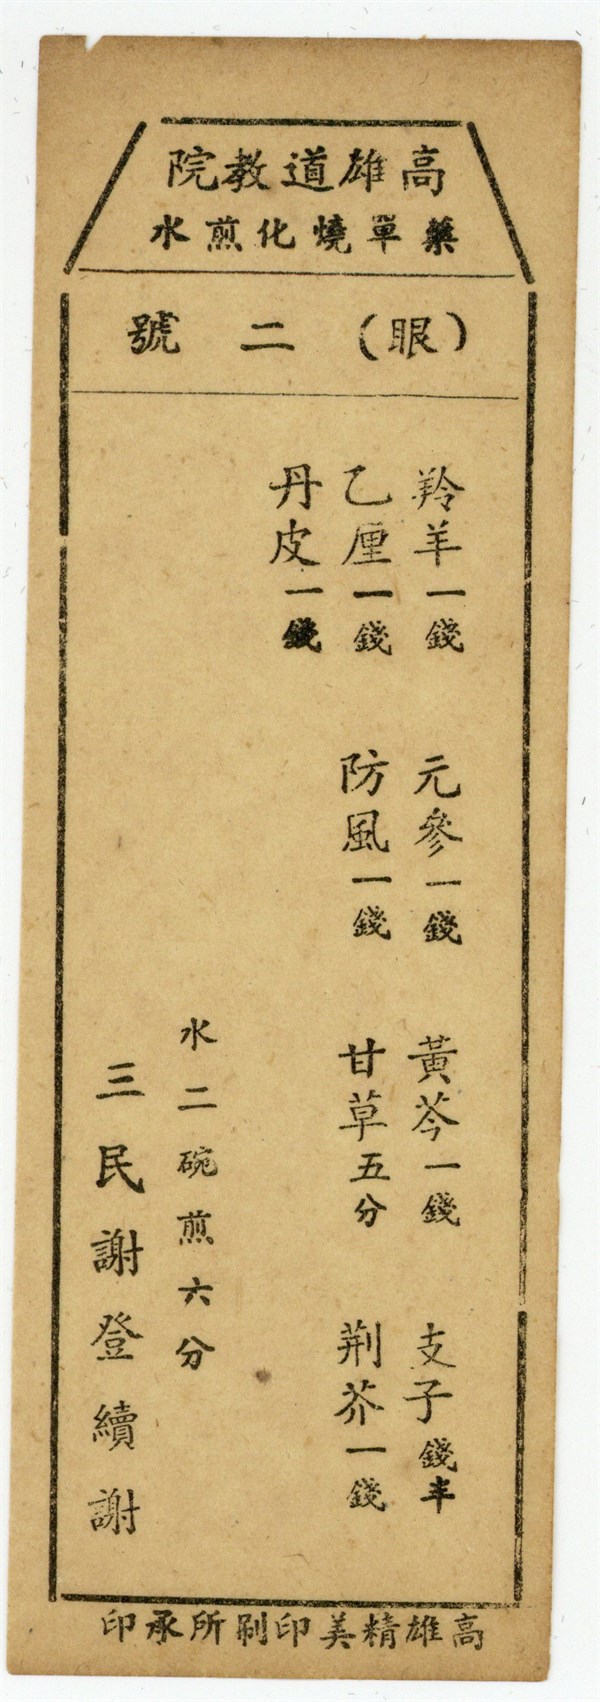 高雄道教院
藥單燒化煎水
（眼）二號
羚羊一錢 元參一錢 黃芩一錢 支子錢半
乙厘一錢 防風一錢 甘草五分 荆芥一錢
丹皮一錢
水二碗煎六分
三民謝登續謝
高雄精美印刷所承印